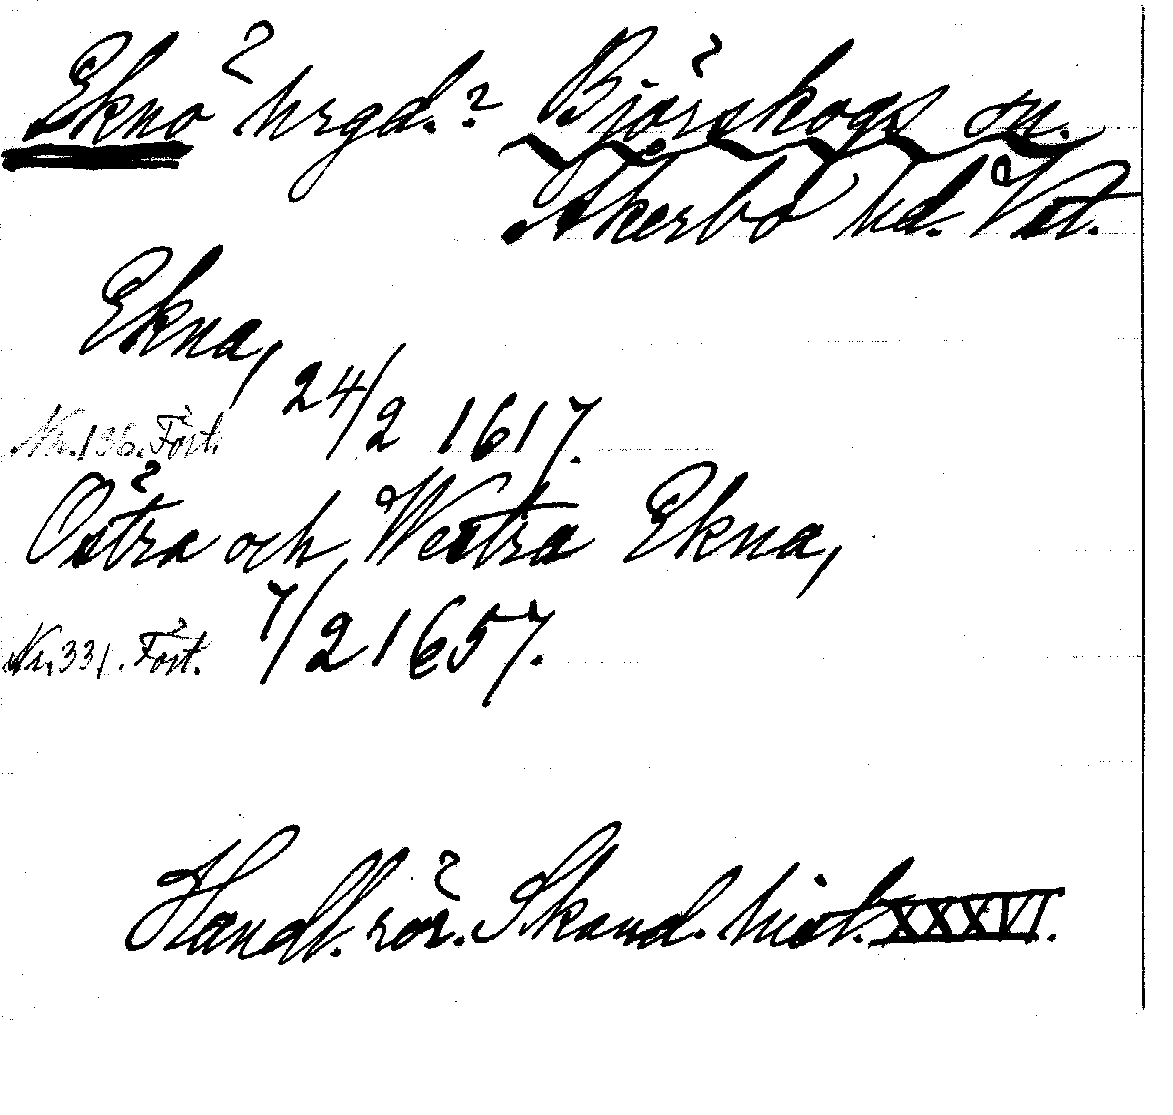 Eknö hrgd.? Björskogs sn.
Åkerbo hd. Vstl.
Ekna,
24/2 1617.
Nr. 136. Fört.
Östra och Westra Ekna,
7/2 1657.
Nr. 331. Fört.
Handl. rör. Skand. hist. XXXVI.